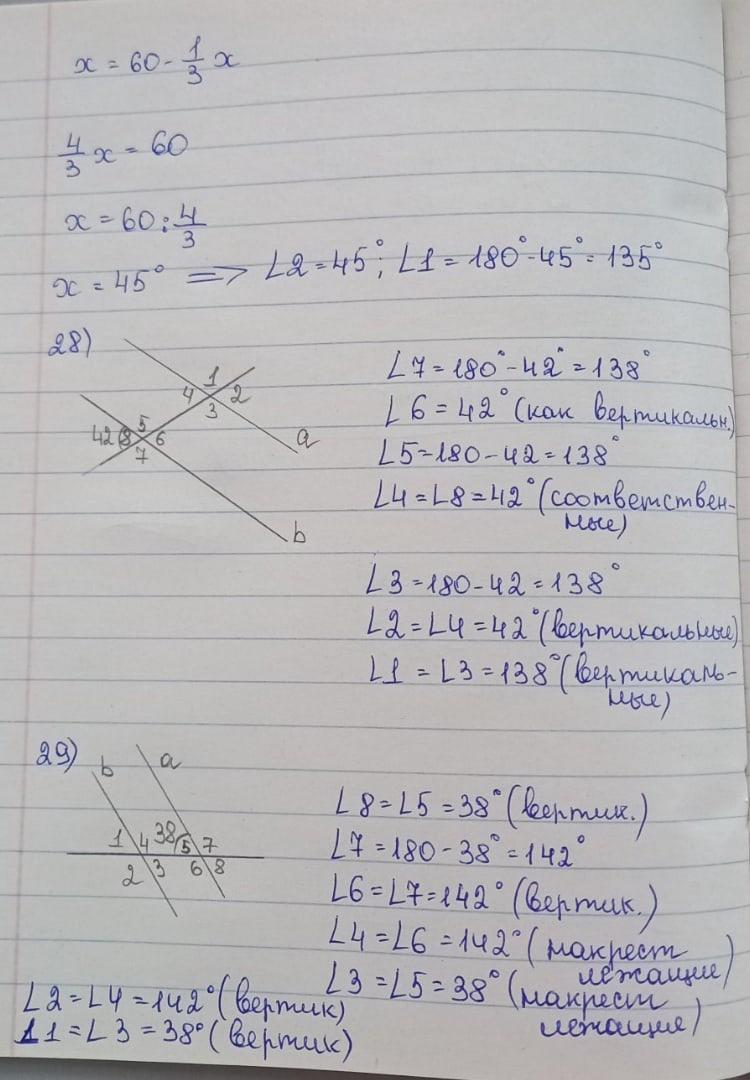 x = 60 - 1/3 x
4/3 x = 60
x = 60 : 4/3
x = 45° => ∠2 = 45°; ∠1 = 180° - 45° = 135°
28)
1
4 2
3
a
42 8 5 6
7
b
∠7 = 180° - 42° = 138°
∠6 = 42° (как вертикальн.)
∠5 = 180 - 42 = 138°
∠4 = ∠8 = 42° (соответствен-
ные)
∠3 = 180 - 42 = 138°
∠2 = ∠4 = 42° (вертикальные)
∠1 = ∠3 = 138° (вертикаль-
ные)
29)
b a
1 4 38 5 7
2 3 6 8
∠8 = ∠5 = 38° (вертик.)
∠7 = 180 - 38° = 142°
∠6 = ∠7 = 142° (вертик.)
∠4 = ∠6 = 142° (накрест
лежащие)
∠3 = ∠5 = 38° (накрест
лежащие)
∠2 = ∠4 = 142° (вертик)
∠1 = ∠3 = 38° (вертик)